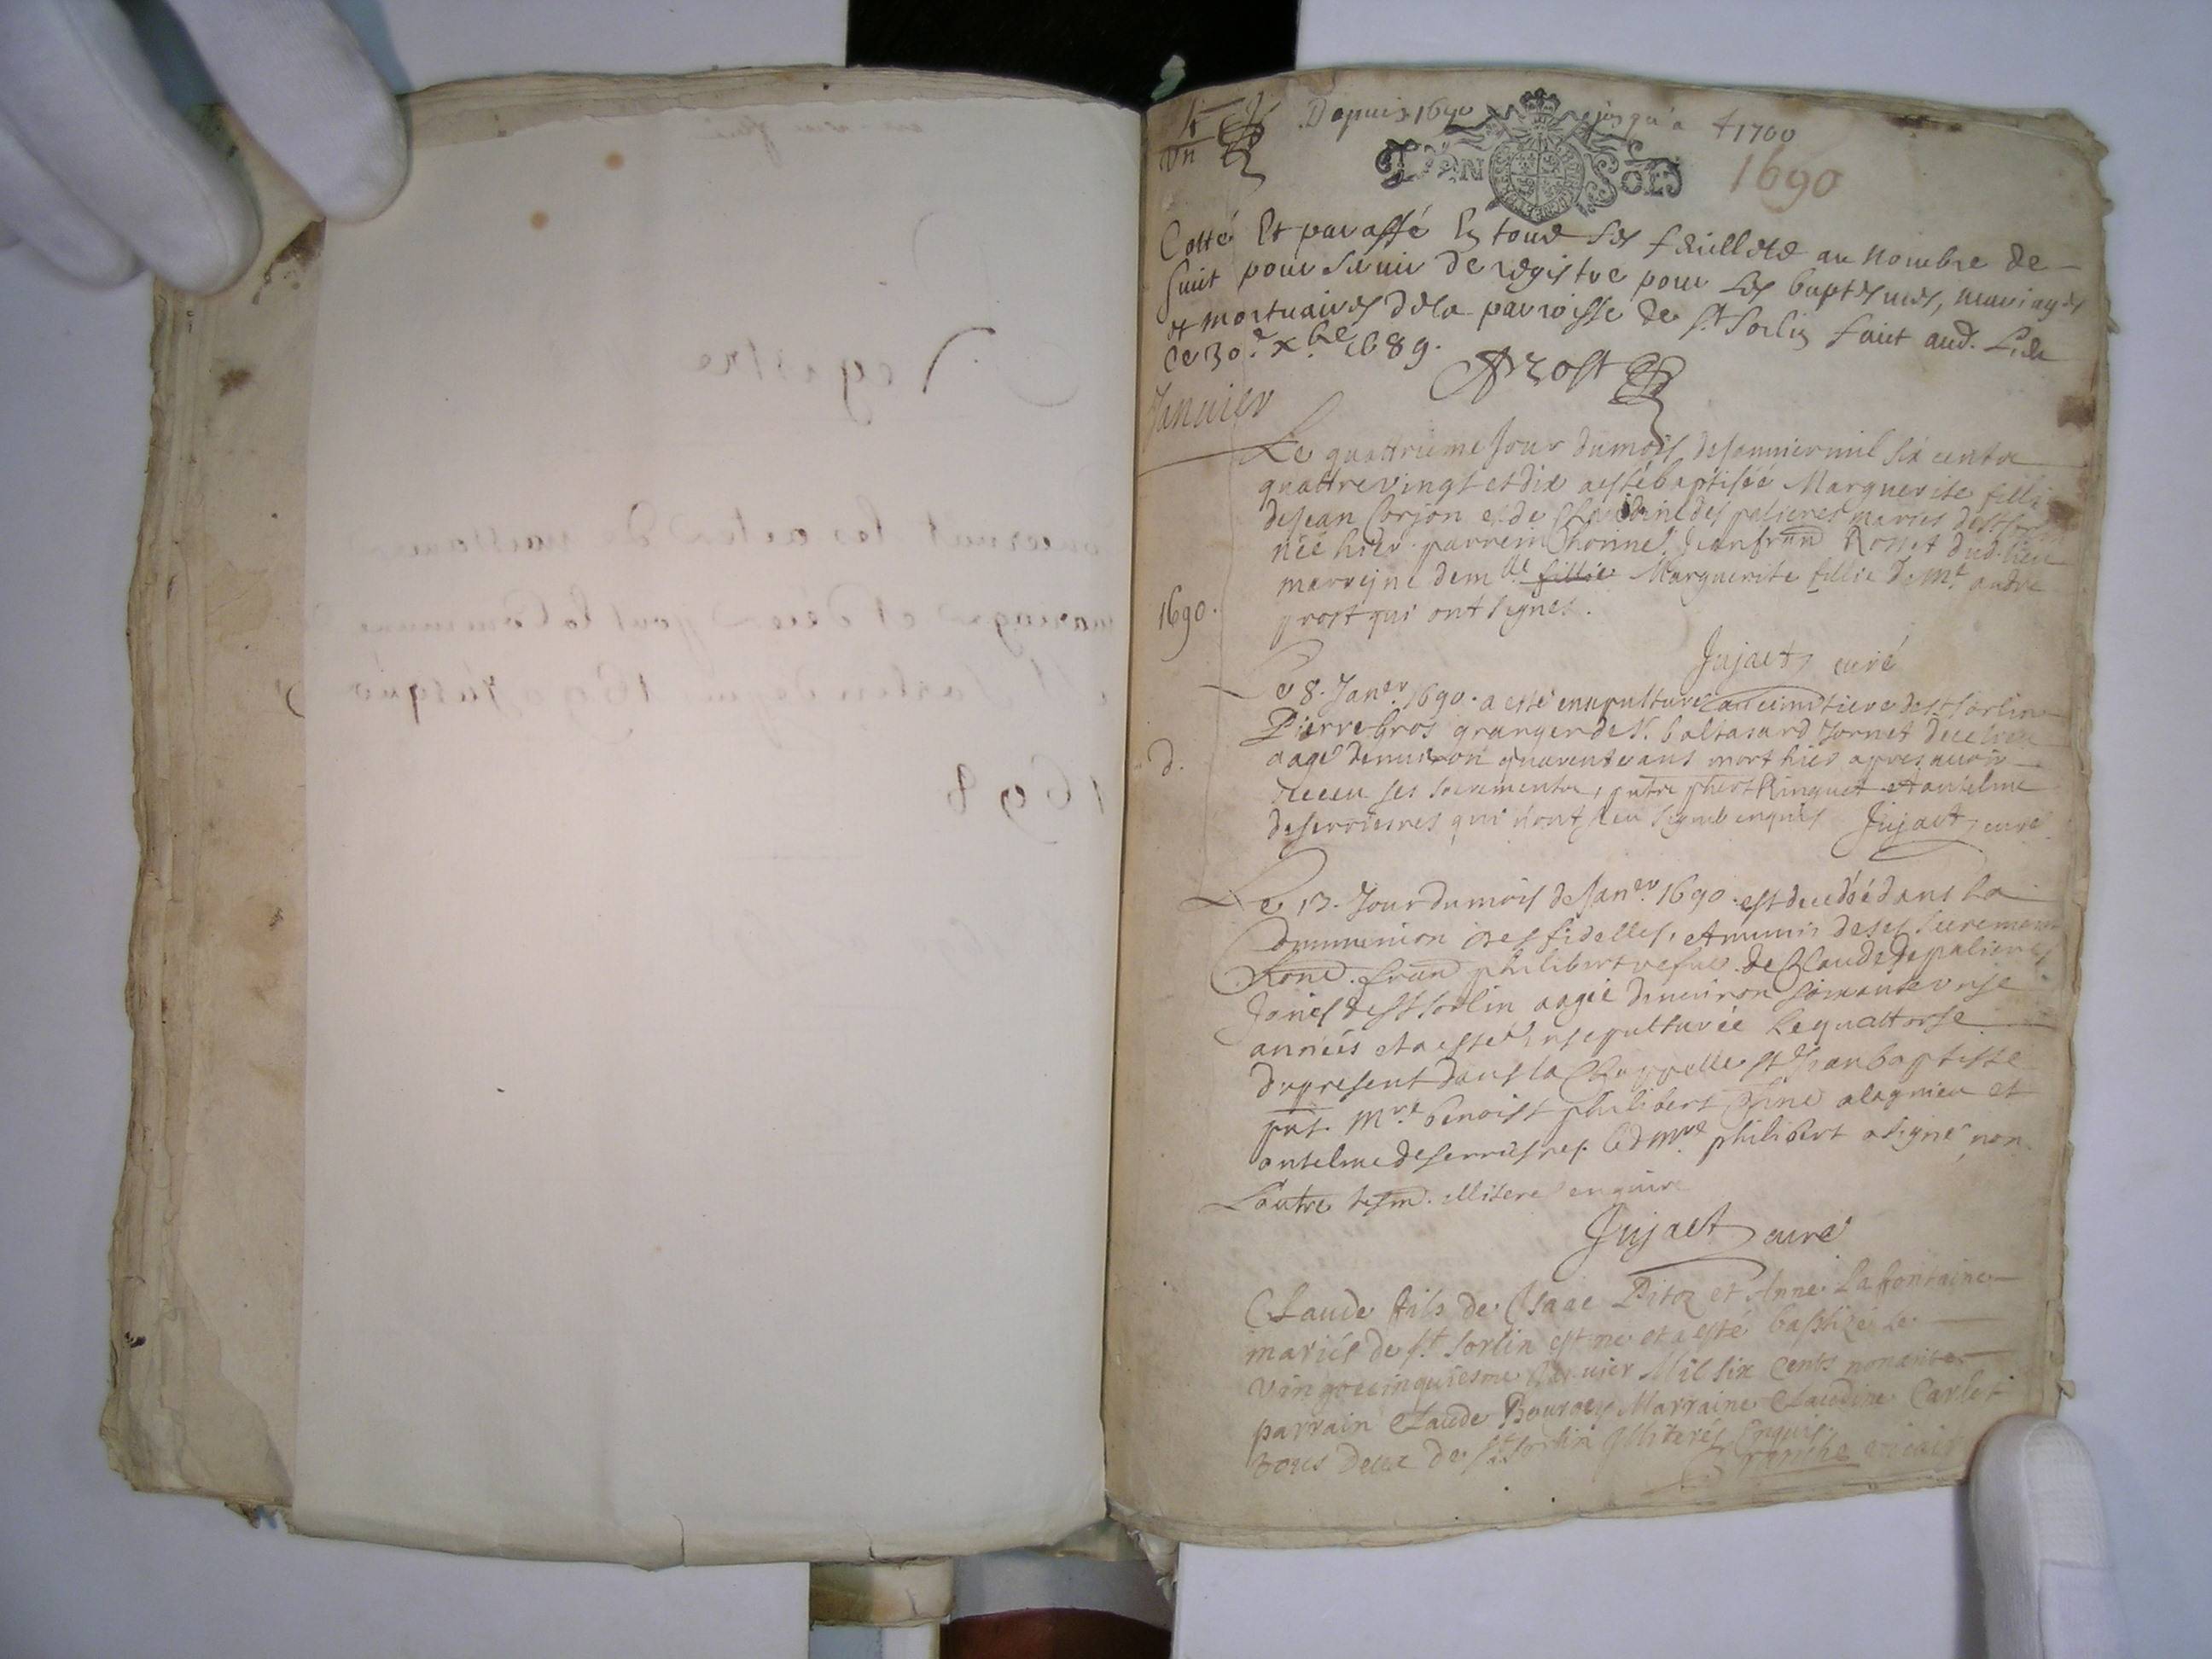 Depuis 1690 jusqu'a 1700
Un SOLS
1690
Cotté Et paraffé En tous ses feuillets au nombre de
huit pour servir de registre pour les baptesmes, mariages
et mortuaires de la parroisse de St Sorlin fait aud. Lieu
ce 30e xbre 1689.
Prost
Janvier
Le quattrieme Jour du mois de Janvier mil six cents
quattrevingt et dix a esté baptiséé Marguerite fillie
de Jean Corjon et de Claudine des palieres mariés de St Sorlin
néé hier. parrein honne. Rosset dud. lieu
marreine demlle fillie Marguerite fillie de me andre
prost qui ont signes.
1690.
Jujact curé
Le 8. Janer. 1690. a esté ensepulturé au cimetiere de St Sorlin
Pierre Gros granger de baltasard Jornet
aagé denviron quarente ans mort hier apres avoir
receu ses sacrements, Ringuet et antelme
deserrieres qui n'ont sceu signer enquis Jujact curé
d.
Le 13. Jour du mois de Janer 1690. est decedéé dans la
Communion des fidelles, et munis de ses sacremens
hone. fran philibert vefve de Claude de palieres
de St Sorlin aagéé denviron
annéés et a esté ensepulturéé le quattorse
du present dans la Chappelle St Jean baptiste
pnt. mre. benoist philibert alagnieu et
antelme deserrieres. led mre philibert a signé non
L'autre tesm. illiteré enquis
Jujact curé
Claude fils de Isaac Pitoz et Anne Lafontaine
mariés de St Sorlin est né et a esté baptizé le
vingtcinquiesme Janvier Mil six cents nonante
parrain Claude Marraine Claudine Carlet
tous deux de St Sorlin illiterés Enquis.
vicair
Registre
concernant les actes de naissance
mariages et décès pour la Commune
St Sorlin depuis 1690 Jusqu'à
1698